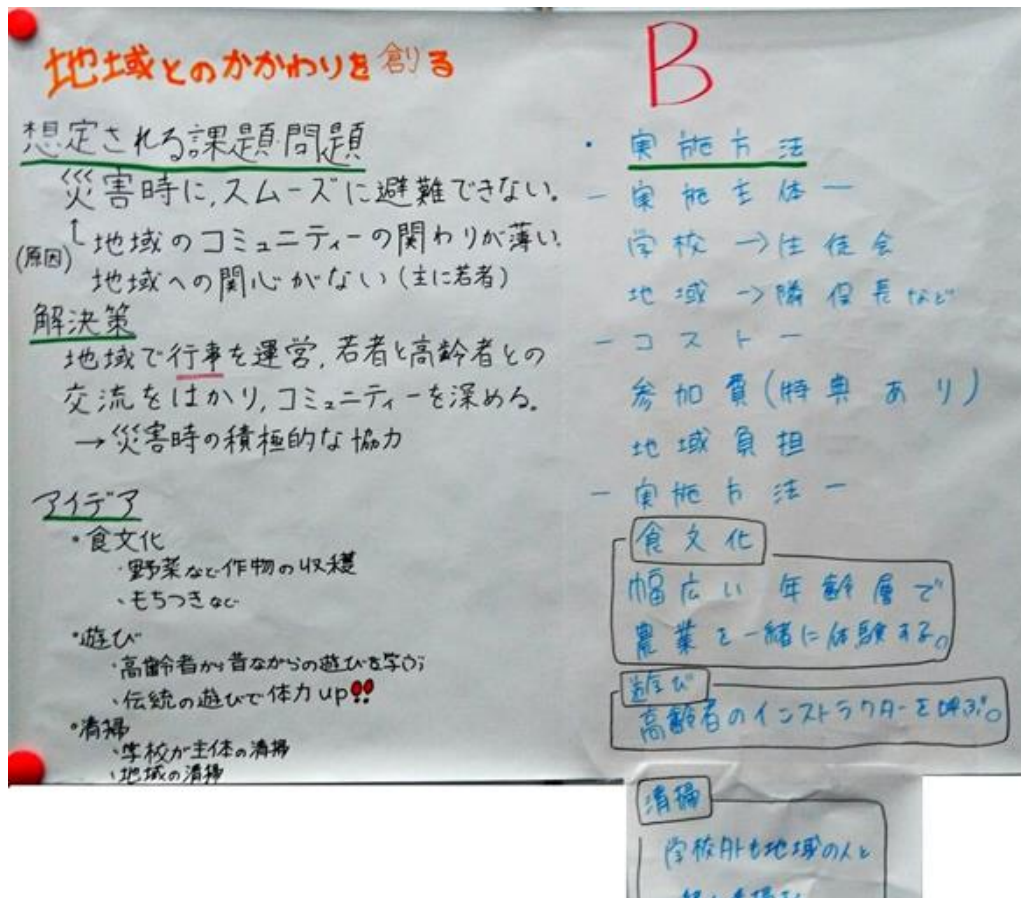 地域とのかかわりを創る
想定される課題・問題
災害時に,スムーズに避難できない。
(原因)
地域のコミュニティーの関わりが薄い。
地域への関心がない(主に若者)
解決策
地域で行事を運営,若者と高齢者との
交流をはかり,コミュニティーを深める。
→災害時の積極的な協力
アイデア
・食文化
・野菜など作物の収穫
・もちつきなど
・遊び
・高齢者から昔ながらの遊びを学ぶ
・伝統の遊びで体力up!!
・清掃
・学校が主体の清掃
・地域の清掃
B
・実施方法
ー実施主体ー
学校→生徒会
地域→隣保長など
ーコストー
参加費(特典あり)
地域負担
ー実施方法ー
食文化
幅広い年齢層で
農業を一緒に体験する。
遊び
高齢者のインストラクターを呼ぶ。
清掃
学校外も地域の人と